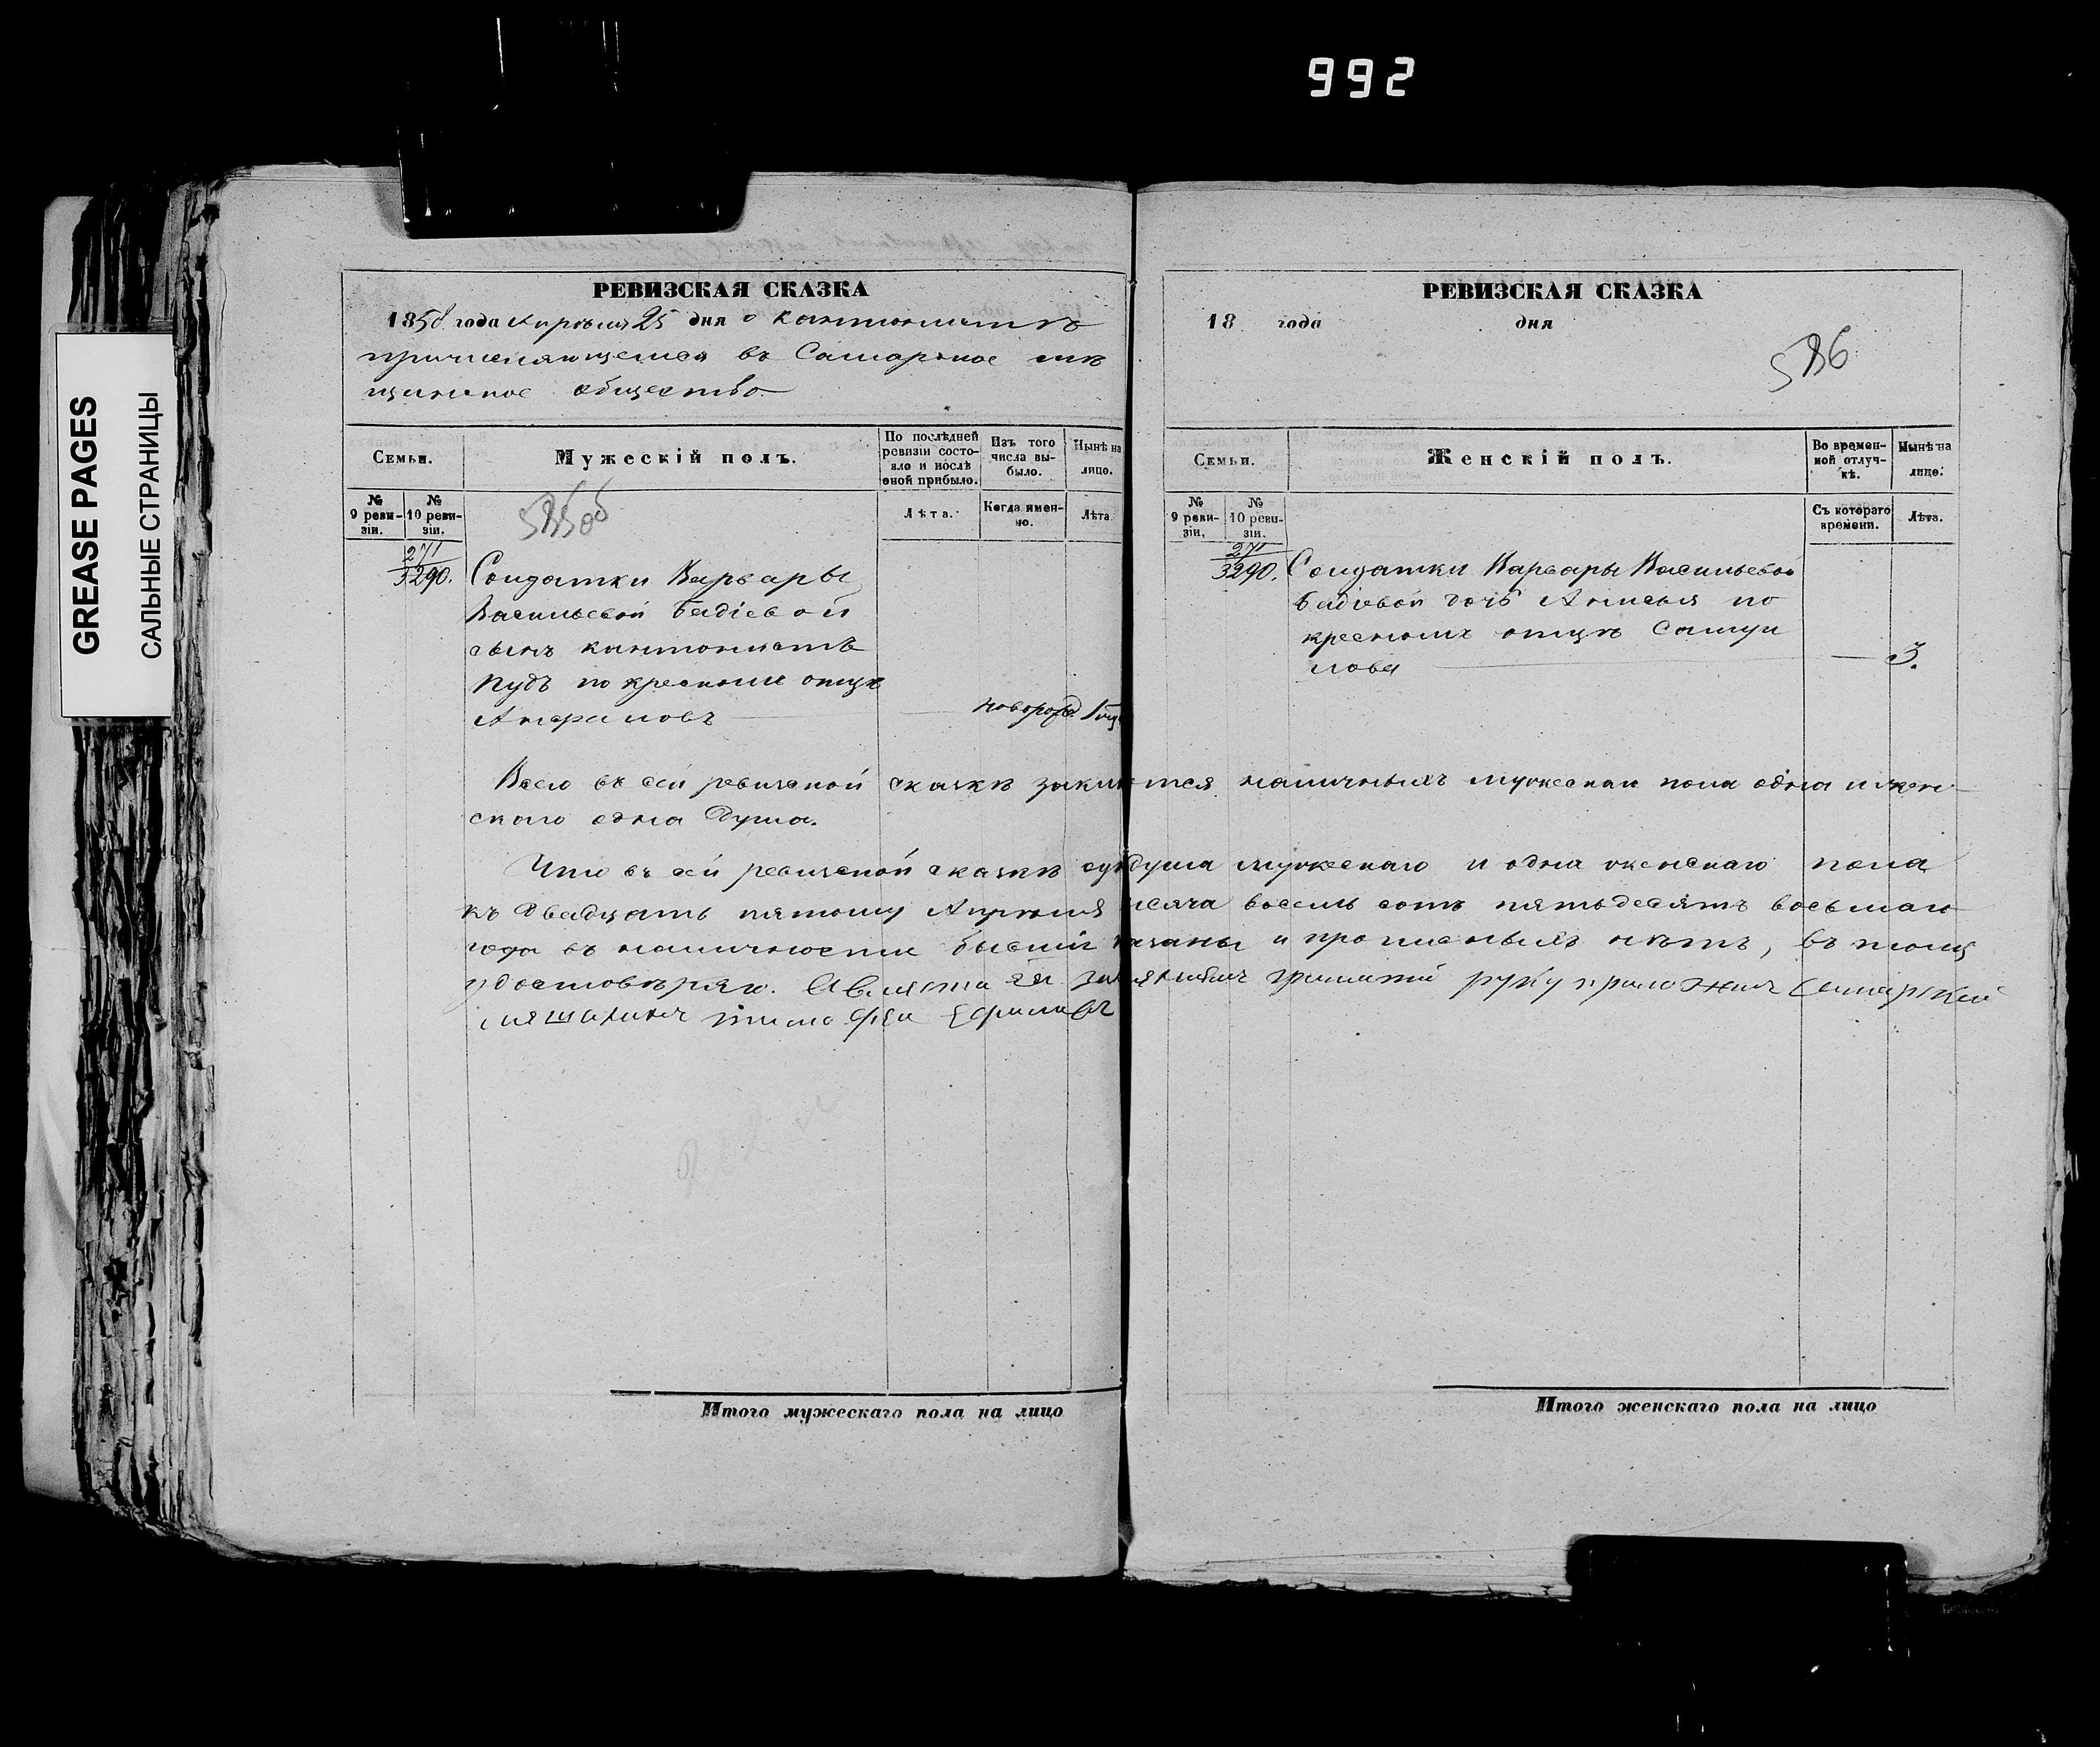 992
GREASE PAGES
САЛЬНЫЕ СТРАНИЦЫ
РЕВИЗСКАЯ СКАЗКА
1858 года Апрѣля 25 дня о кантонистѣ
причисляющемся въ Самарское мѣ
щанское общество
Семьи.
Мужескій полъ.
По послѣдней ревизіи состояло и послѣ оной прибыло.
Изъ того числа выбыло.
Нынѣ на лицо.
№ 9 ревизіи.
№ 10 ревизіи.
Лѣта.
Когда именно.
Лѣта
585об
271
3290.
Солдатки Варвары
Васильевой Бадіевой
сынъ кантонистъ
по крестном отцѣ
новорожд. 1
Всего въ сей ревизской сказкѣ наличныхъ мужескаго пола одна и жен
скаго одна душа.
Что въ сей ревизской сказкѣ душа мужескаго и одна женскаго пола
къ двадцать пятому Апрѣля тысяча восемь сотъ пятьдесятъ восьмаго
года въ наличности и прописныхъ нѣтъ, въ томъ
удостовѣряю. руку приложилъ Самарской
РЕВИЗСКАЯ СКАЗКА
18 года дня
586
Семьи.
Женскій полъ.
Во временной отлучкѣ.
Нынѣ на лицо.
№ 9 ревизіи,
№ 10 ревизіи.
Съ котораго времени.
Лѣта.
271
3290.
Солдатки Варвары Васильевой
Бадіевой дочь по
крестномъ отцѣ Самуи
лова
3.
Итого мужескаго пола на лицо
Итого женскаго пола на лицо